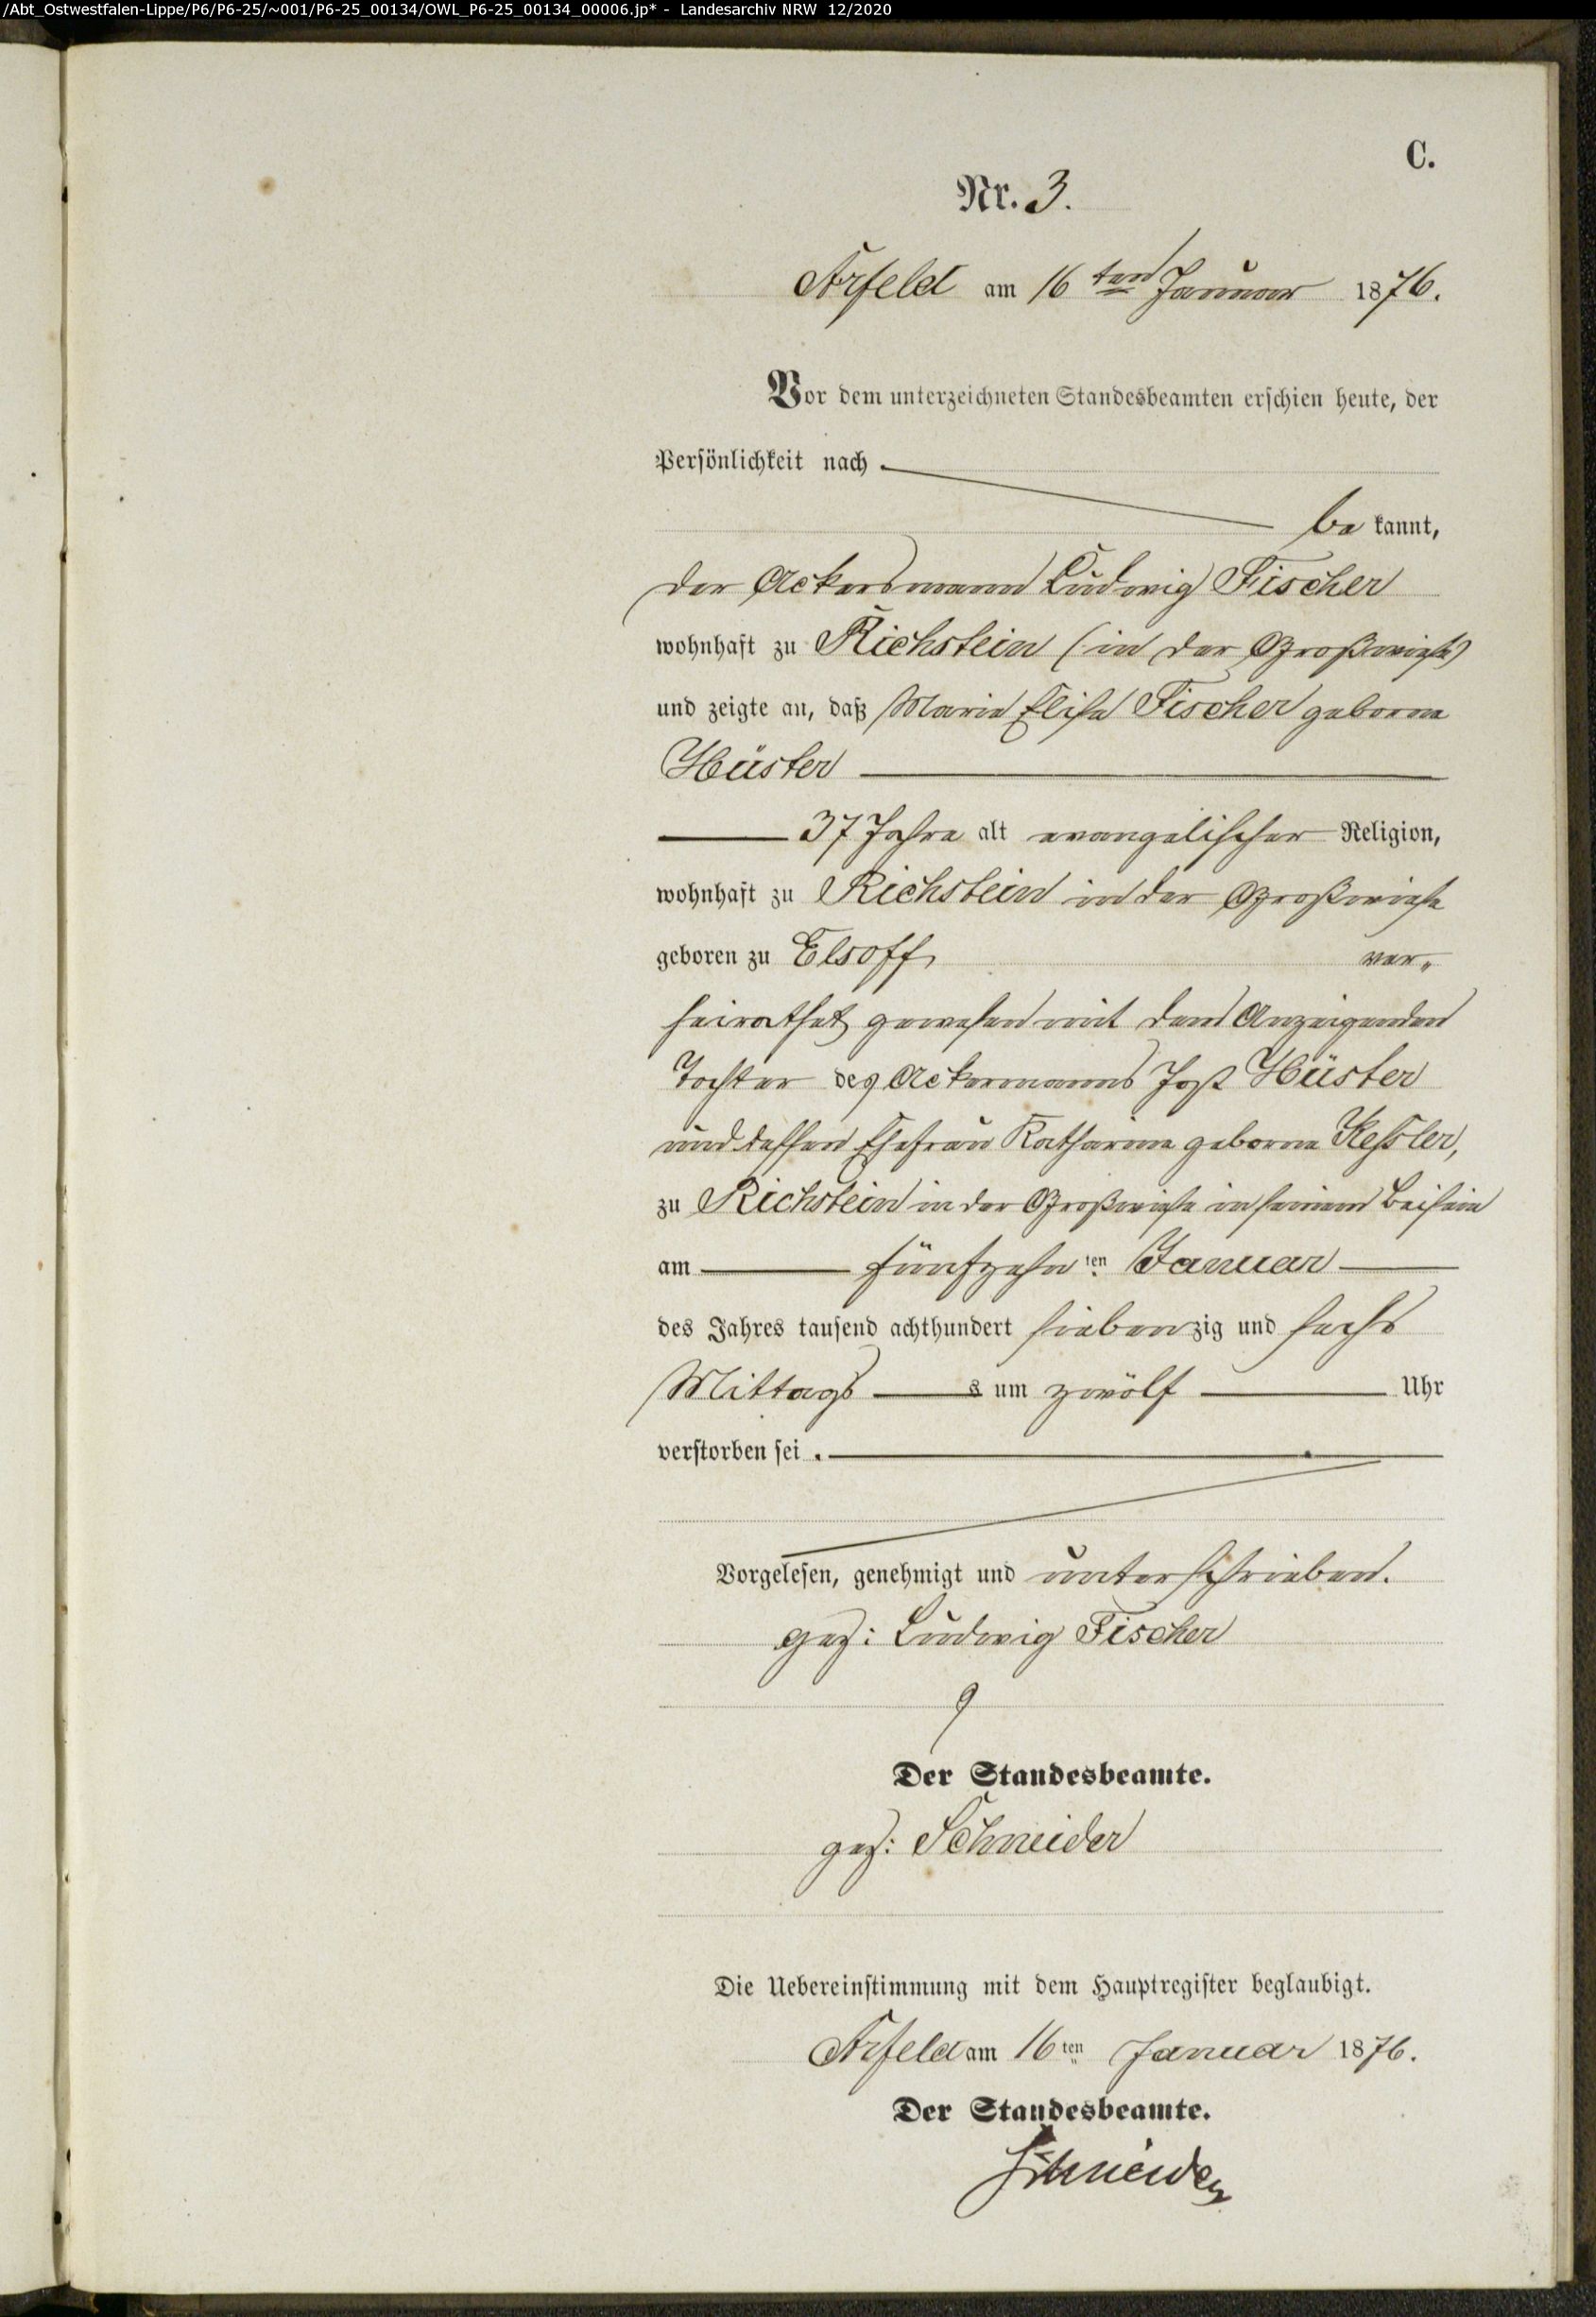 /Abt_Ostwestfalen-Lippe/P6/P6-25/~001/P6-25_00134/OWL_P6-25_00134_00006.jp* - Landesarchiv NRW 12/2020
C.
Nr. 3.
Arfeld am 16ten Januar 1876.
Vor dem unterzeichneten Standesbeamten erschien heute, der
Persönlichkeit nach
be kannt,
der Ackersmann Ludwig Fischer
wohnhaft zu Richstein (in der Großwiese)
und zeigte an, daß Marie Elise Fischer geborne
Hüster
37 Jahre alt evangelischer Religion,
wohnhaft zu Richstein in der Großwiese
geboren zu Elsoff, ver„
heirathet gewesen mit dem Anzeigenden
Tochter des Ackermanns Jost Hüster
und dessen Ehefrau Katharine geborne Keßler,
zu Richstein in der Großwiese in seinem Beisein
am fünfzehnten Januar
des Jahres tausend achthundert siebenzig und sechs
Mittags s um zwölf Uhr
verstorben sei.
Vorgelesen, genehmigt und unterschrieben.
gez: Ludwig Fischer
Der Standesbeamte.
gez: Schneider
Die Uebereinstimmung mit dem Hauptregister beglaubigt.
Arfeld am 16ten Januar 1876.
Der Standesbeamte.
Schneider